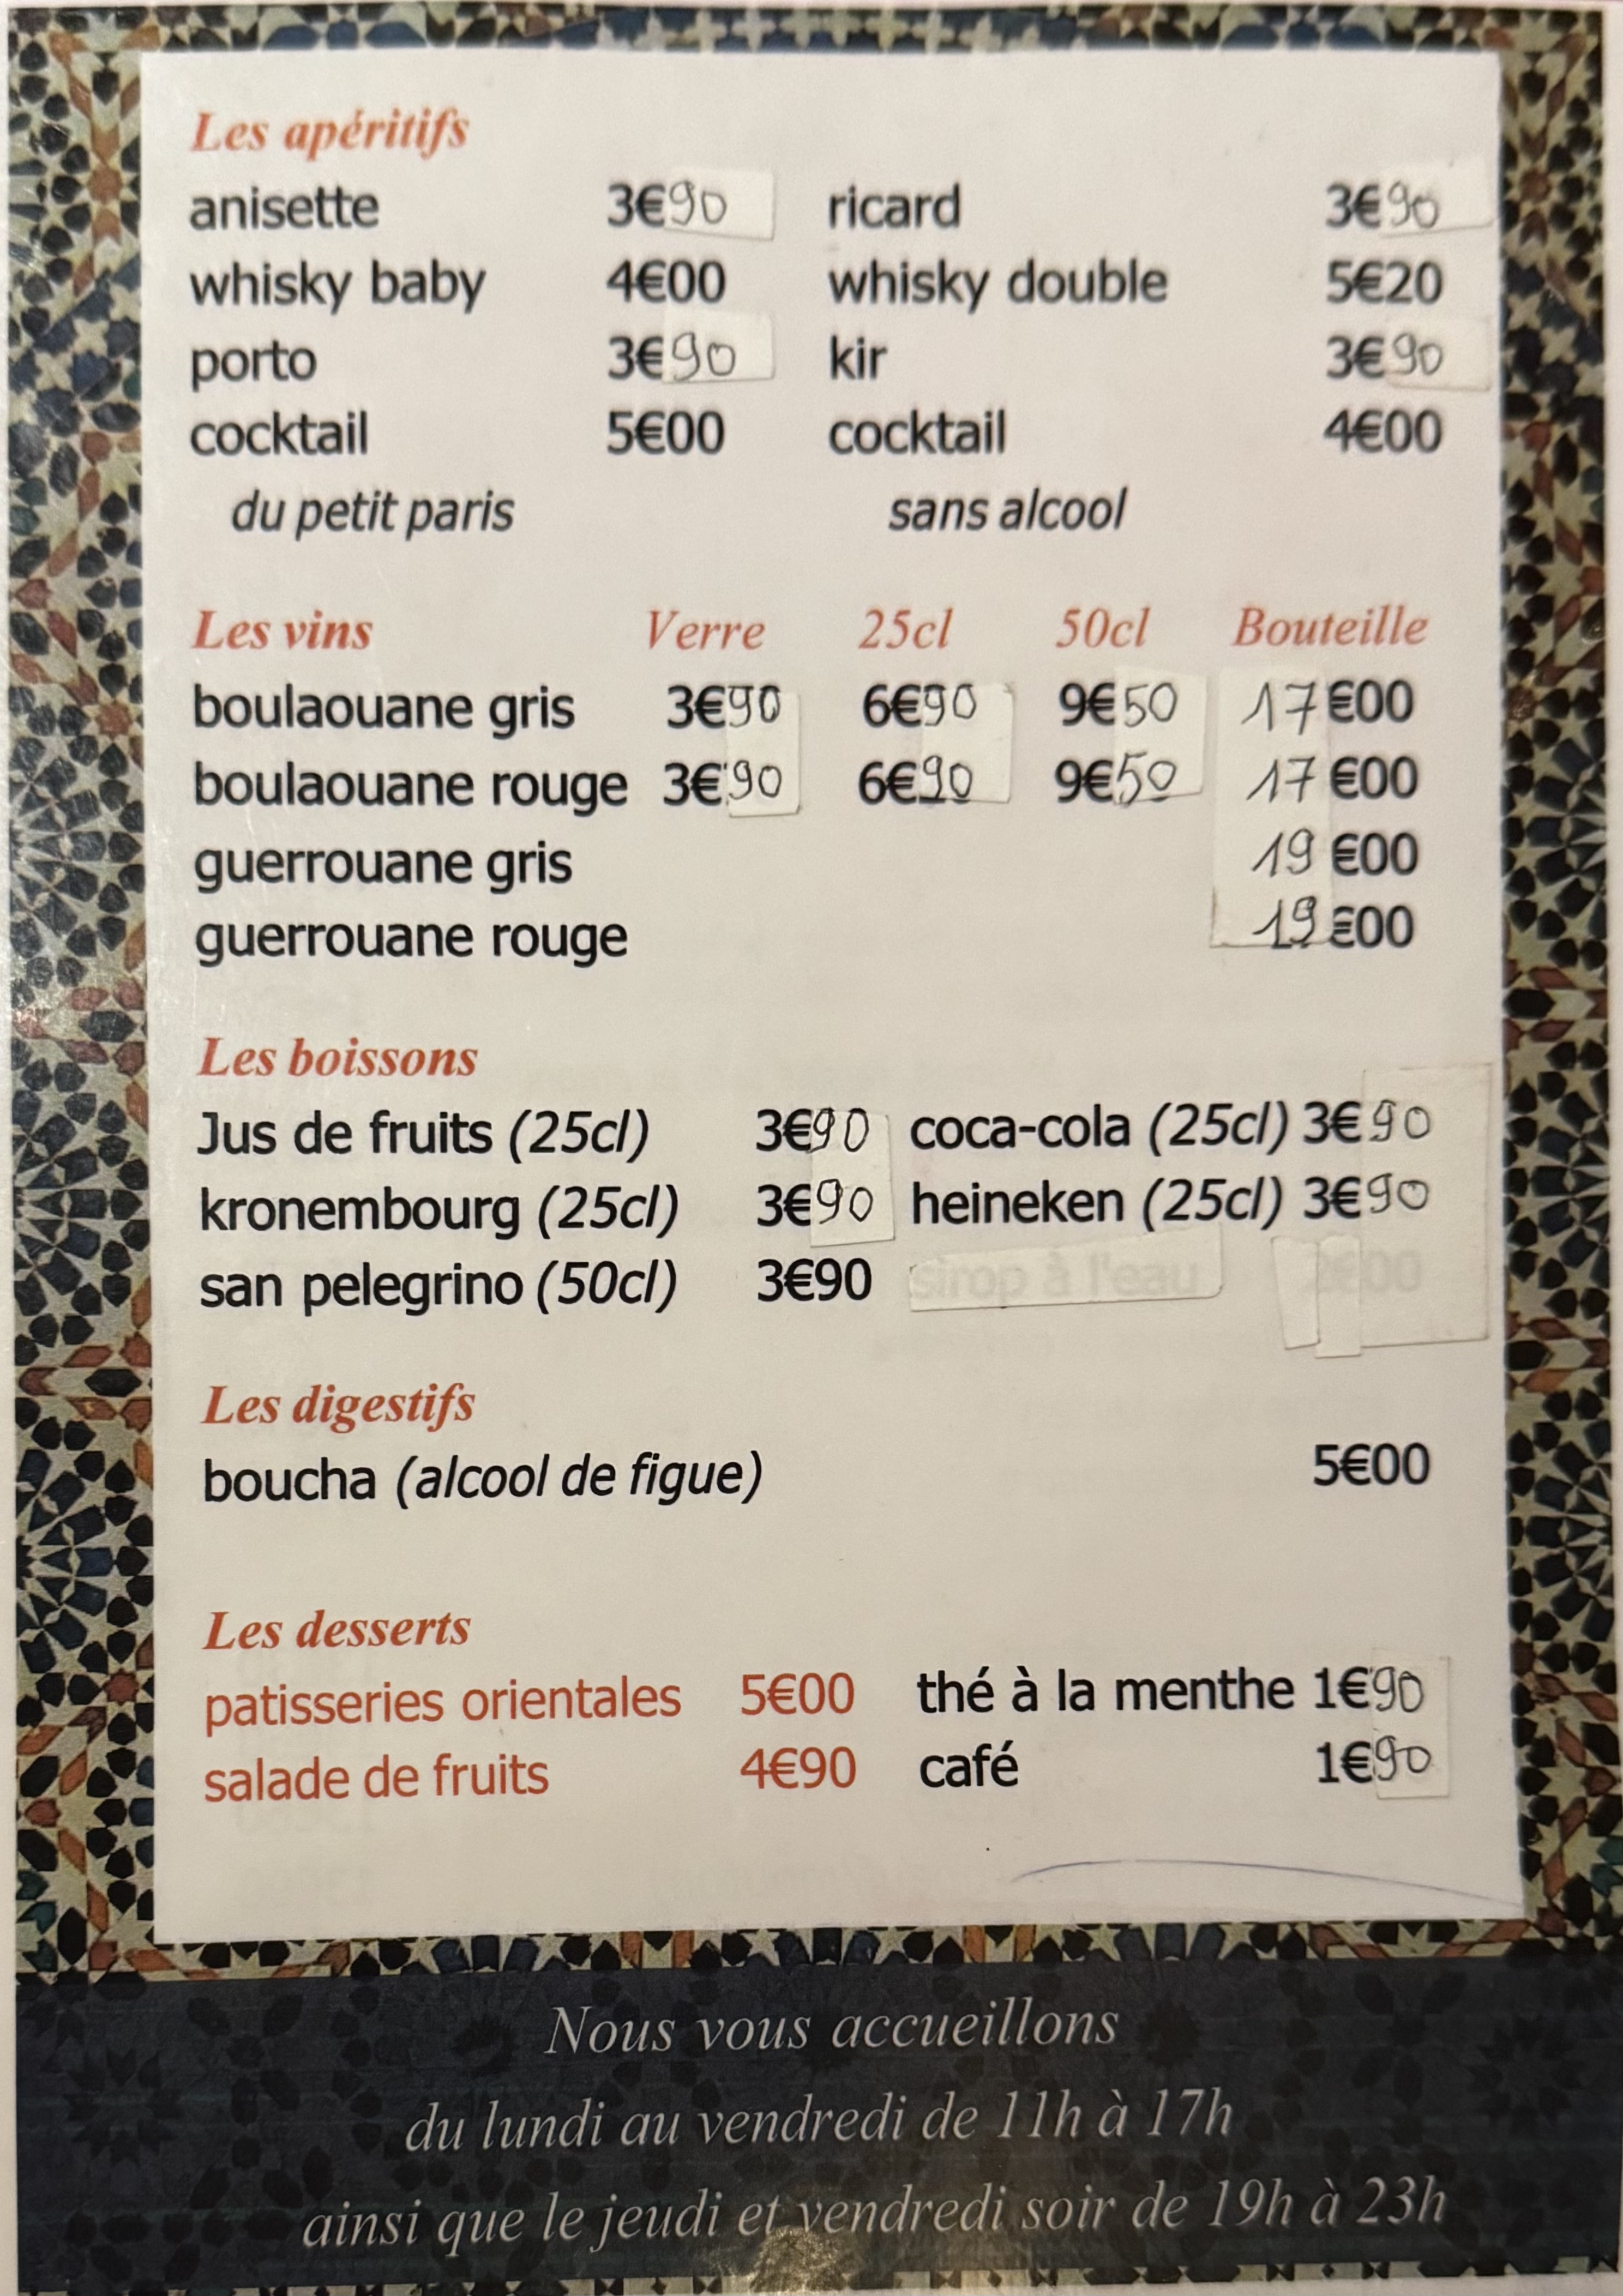 Les apéritifs
anisette 3€90 ricard 3€90
whisky baby 4€00 whisky double 5€20
porto 3€90 kir 3€90
cocktail 5€00 cocktail 4€00
du petit paris sans alcool
Les vins Verre 25cl 50cl Bouteille
boulaouane gris 3€90 6€90 9€50 17€00
boulaouane rouge 3€90 6€90 9€50 17€00
guerrouane gris 19€00
guerrouane rouge 19€00
Les boissons
Jus de fruits (25cl) 3€90 coca-cola (25cl) 3€90
kronembourg (25cl) 3€90 heineken (25cl) 3€90
san pelegrino (50cl) 3€90 sirop à l'eau 2€00
Les digestifs
boucha (alcool de figue) 5€00
Les desserts
patisseries orientales 5€00 thé à la menthe 1€90
salade de fruits 4€90 café 1€90
Nous vous accueillons
du lundi au vendredi de 11h à 17h
ainsi que le jeudi et vendredi soir de 19h à 23h